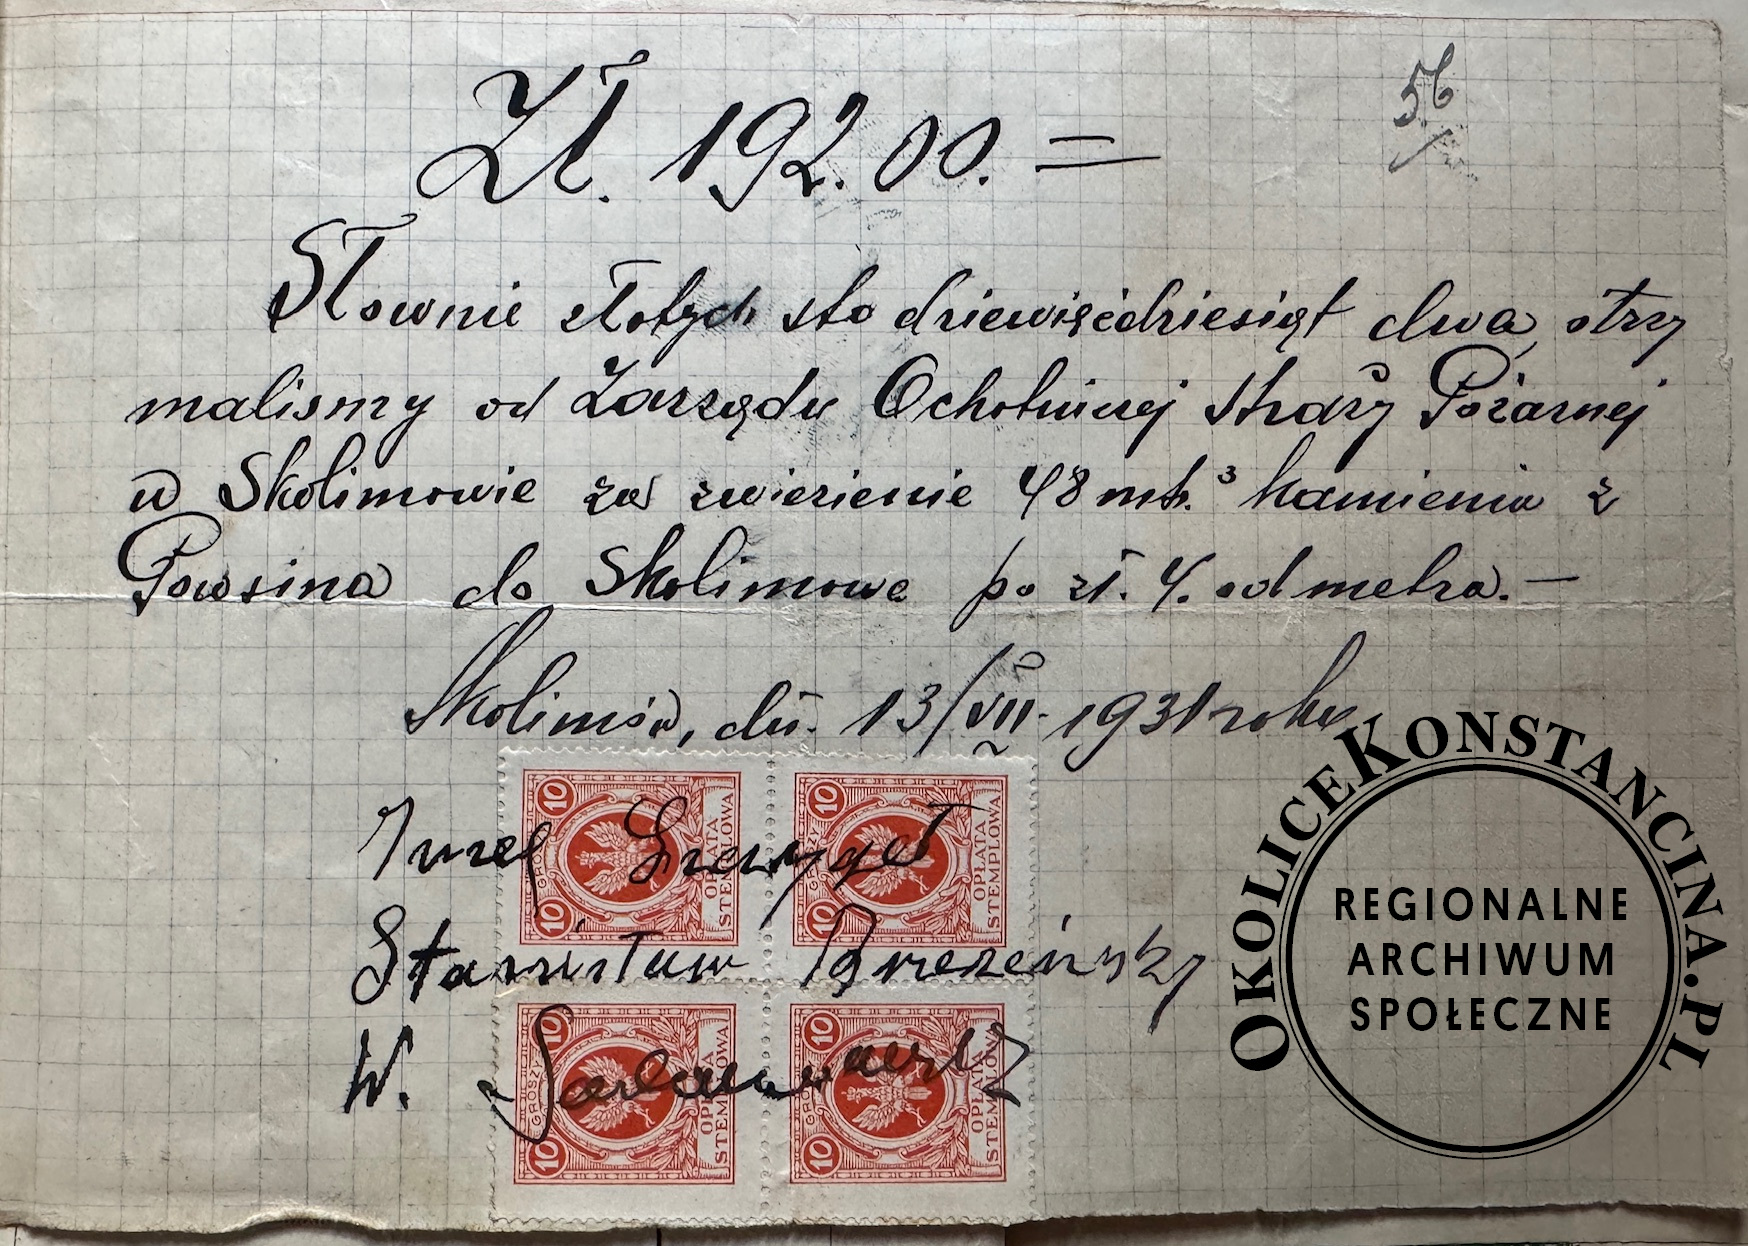 56
Zł. 192.00. =
Słownie złotych sto dziewięćdziesiąt dwa, otrzy
maliśmy od Zarządu Ochotniczej Straży Pożarnej
w Skolimowie za zwiezienie 48 mtr.³ kamienia z
Powsina do Skolimowa po zł. 4. od metra. —
Skolimów, dń. 13/VII - 1931 roku
Józef
Stanisław
W.
10 GROSZY 10 OPŁATA STEMPLOWA
10 GROSZY 10 OPŁATA STEMPLOWA
10 GROSZY 10 OPŁATA STEMPLOWA
10 GROSZY 10 OPŁATA STEMPLOWA
OKOLICEKONSTANCINA.PL
REGIONALNE
ARCHIWUM
SPOŁECZNE